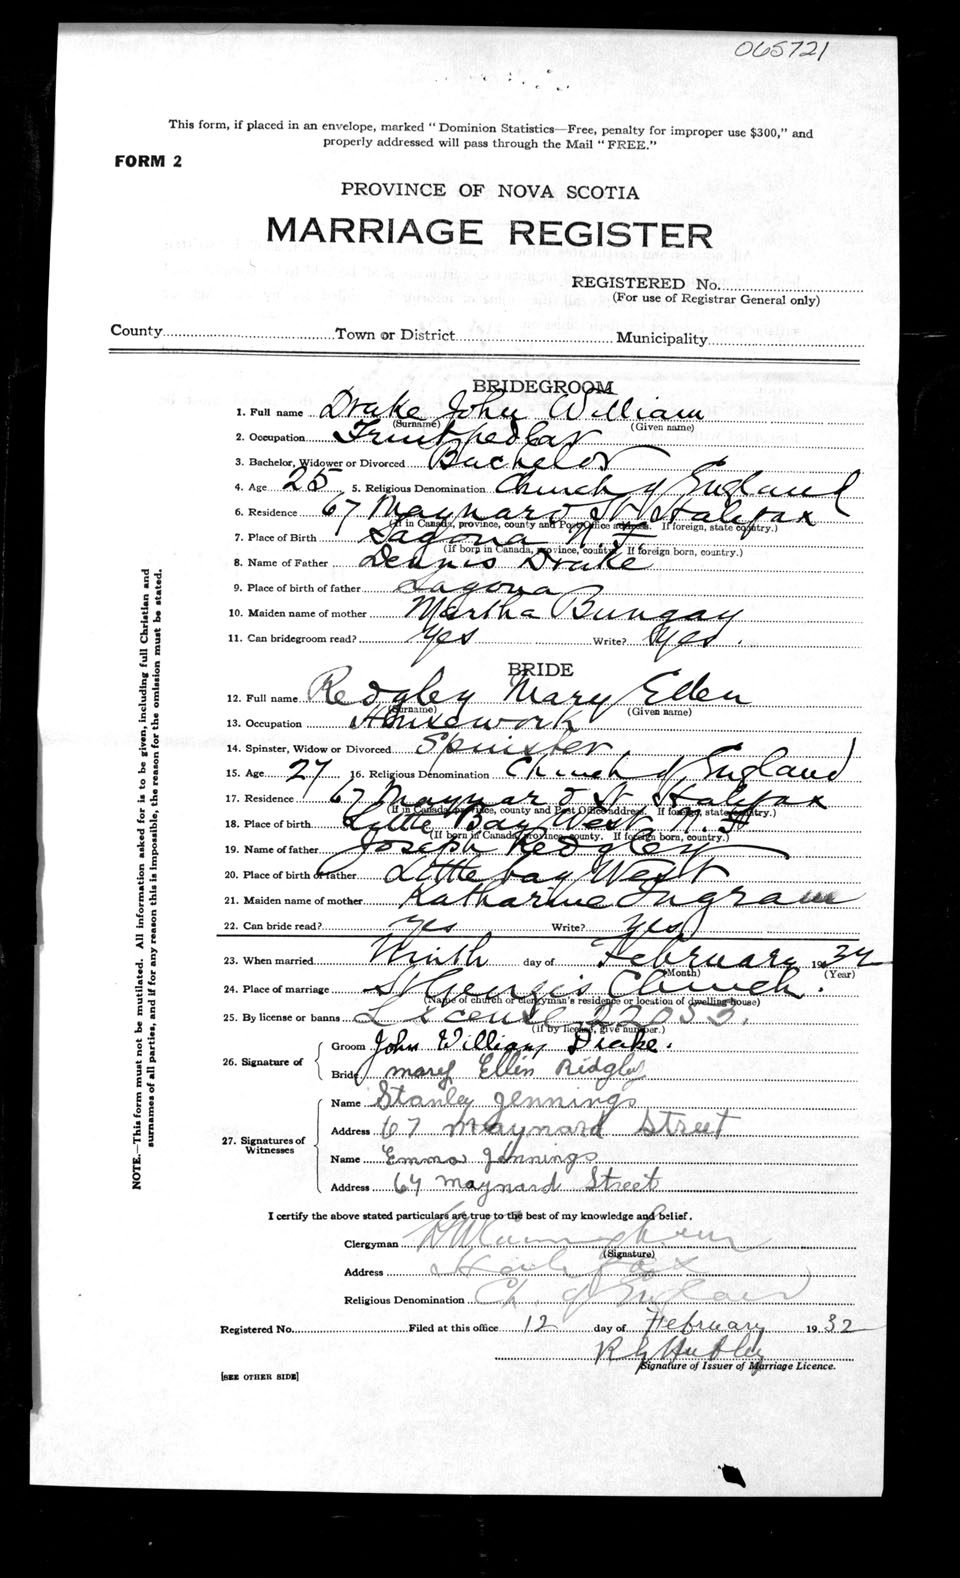 065721
This form, if placed in an envelope, marked "Dominion Statistics—Free, penalty for improper use $300," and
properly addressed will pass through the Mail "FREE."
FORM 2
PROVINCE OF NOVA SCOTIA
MARRIAGE REGISTER
REGISTERED No.
(For use of Registrar General only)
County Town or District Municipality
BRIDEGROOM
1. Full name Drake John William
(Surname) (Given name)
2. Occupation Fruit pedlar
3. Bachelor, Widower or Divorced Bachelor
4. Age 25 5. Religious Denomination Church of England
6. Residence 67 Maynard St Halifax
(If in Canada, province, county and Post Office address. If foreign, state country.)
7. Place of Birth Sagona N.F
(If born in Canada, province, county. If foreign born, country.)
8. Name of Father Dennis Drake
9. Place of birth of father Sagona
10. Maiden name of mother Martha Bungay
11. Can bridegroom read? yes Write? Yes.
BRIDE
12. Full name Redgley Mary Ellen
(Surname) (Given name)
13. Occupation Housework
14. Spinster, Widow or Divorced Spinster
15. Age 27 16. Religious Denomination Church of England
17. Residence 67 Maynard St Halifax
(If in Canada, province, county and Post Office address. If foreign, state country.)
18. Place of birth Little Bay West N.F
(If born in Canada, province, county. If foreign born, country.)
19. Name of father Joseph Redgley
20. Place of birth of father Little bay West
21. Maiden name of mother Katharine Ingram
22. Can bride read? yes Write? yes
23. When married Ninth day of February 19 32
(Month) (Year)
24. Place of marriage St Georges Church.
(Name of church or clergyman's residence or location of dwelling house)
25. By license or banns License 22053.
(If by license, give number.)
26. Signature of
Groom John William Drake.
Bride mary Ellin Ridgley
27. Signatures of Witnesses
Name Stanley Jennings
Address 67 Maynard Street
Name Emma Jennings
Address 67 maynard Street
I certify the above stated particulars are true to the best of my knowledge and belief.
Clergyman
(Signature)
Address Halifax
Religious Denomination Ch. of England
Registered No. Filed at this office 12 day of February 19 32
Signature of Issuer of Marriage Licence.
[SEE OTHER SIDE]
NOTE.—This form must not be mutilated. All information asked for is to be given, including full Christian and
surnames of all parties, and if for any reason this is impossible, the reason for the omission must be stated.